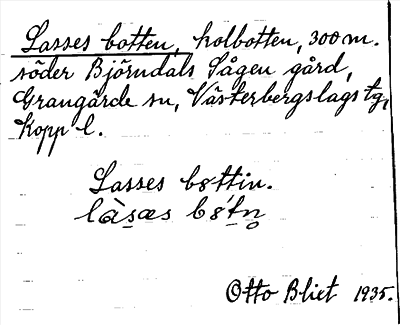 Lasses botten, kolbotten, 300 m.
söder Björndals Sågen gård,
Grangärde sn, Västerbergslags tg,
Kopp l.
Lasses bøttin.
làs̠æs bǿt̠n̥
Otto Blixt 1935.